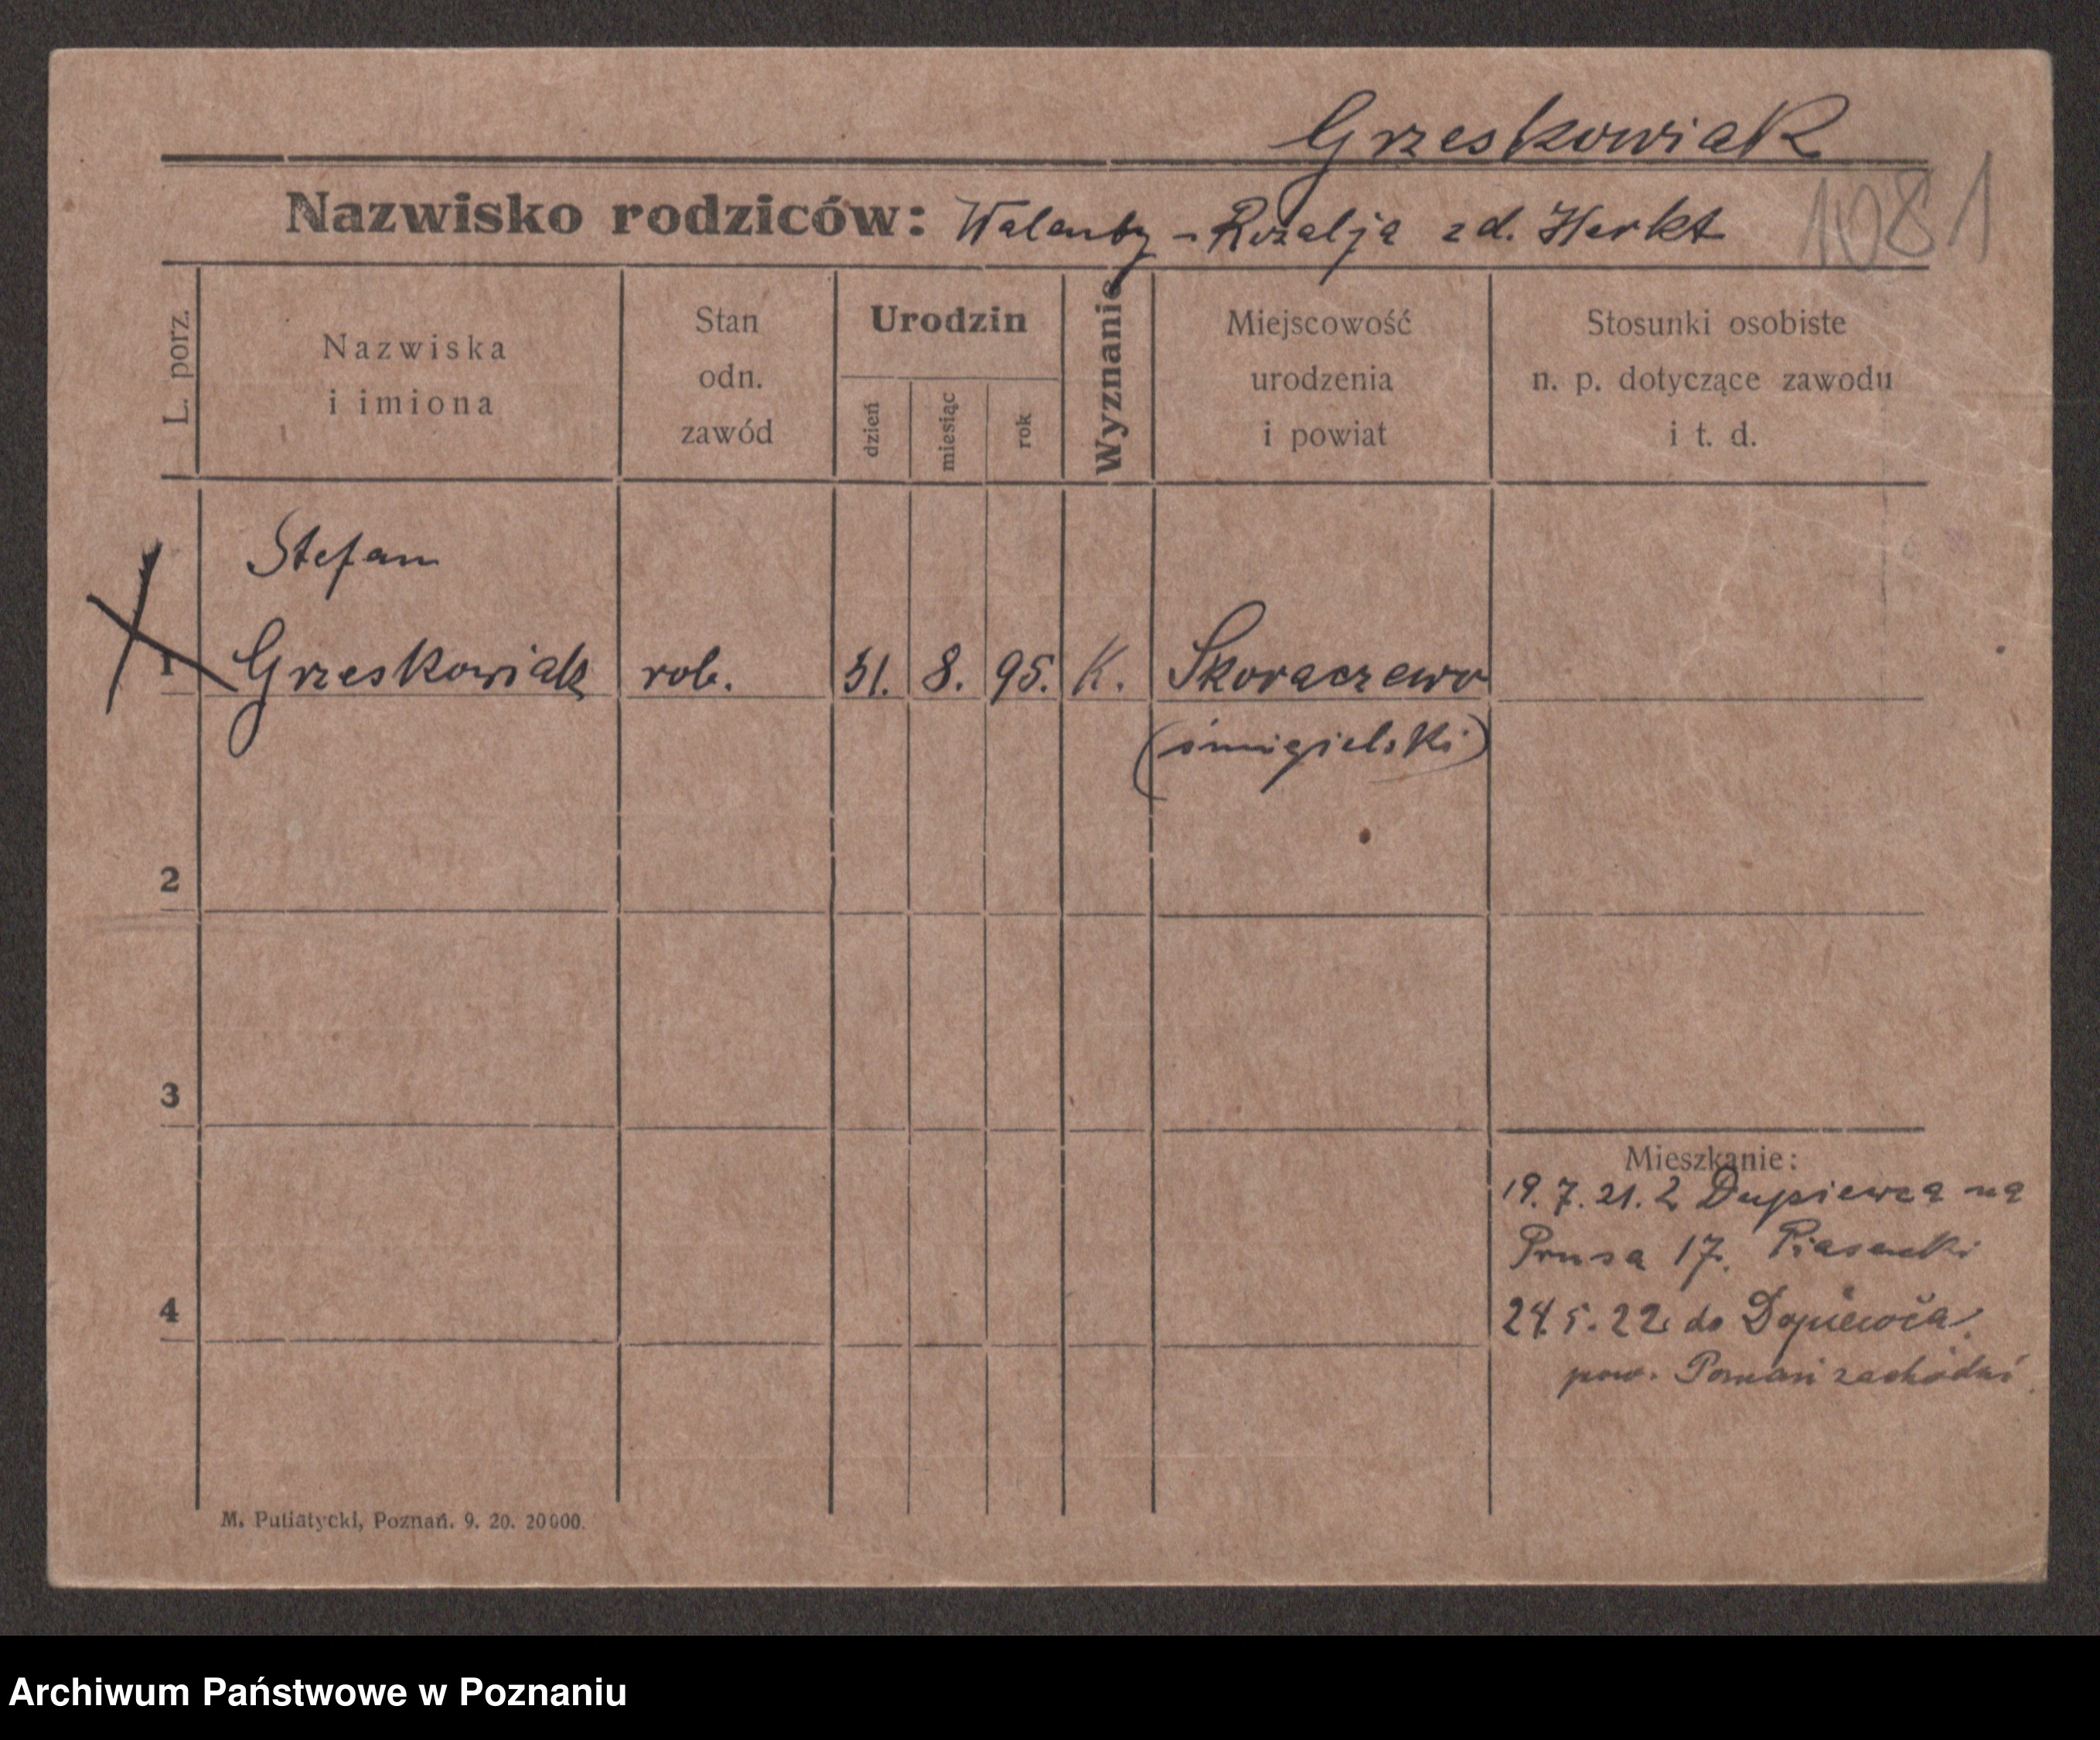 Grzeskowiak
Nazwisko rodziców: Walenty - Rozalja zd. Herkt
1081
L. porz.
Nazwiska
i imiona
Stan
odn.
zawód
Urodzin
dzień
miesiąc
rok
Wyznanie
Miejscowość
urodzenia
i powiat
Stosunki osobiste
n. p. dotyczące zawodu
i t. d.
Stefan
1 Grzeskowiak rob. 31. 8. 95. K. Skoraczewo
(śmigielski)
2
3
4
Mieszkanie:
19. 7. 21. z Dupiewca na
Prusa 17. Piasecki
24. 5. 22 do Dopiewca
pow. Poznań zachódni
M. Putiatycki, Poznań. 9. 20. 20000.
Archiwum Państwowe w Poznaniu